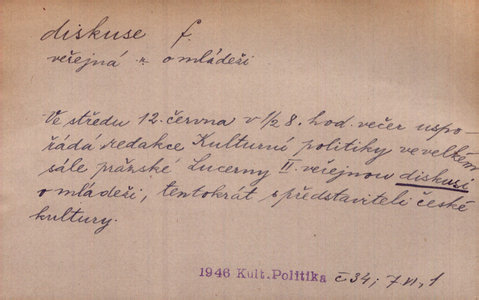 diskuse f.
veřejná ~ o mládeži
Ve středu 12. června v 1/2 8. hod. večer uspo-
řádá redakce Kulturní politiky ve velkém
sále pražské Lucerny II. veřejnou diskusi
o mládeži, tentokrát s představiteli české
kultury.
1946 Kult. Politika č 34; 7 VI, 1